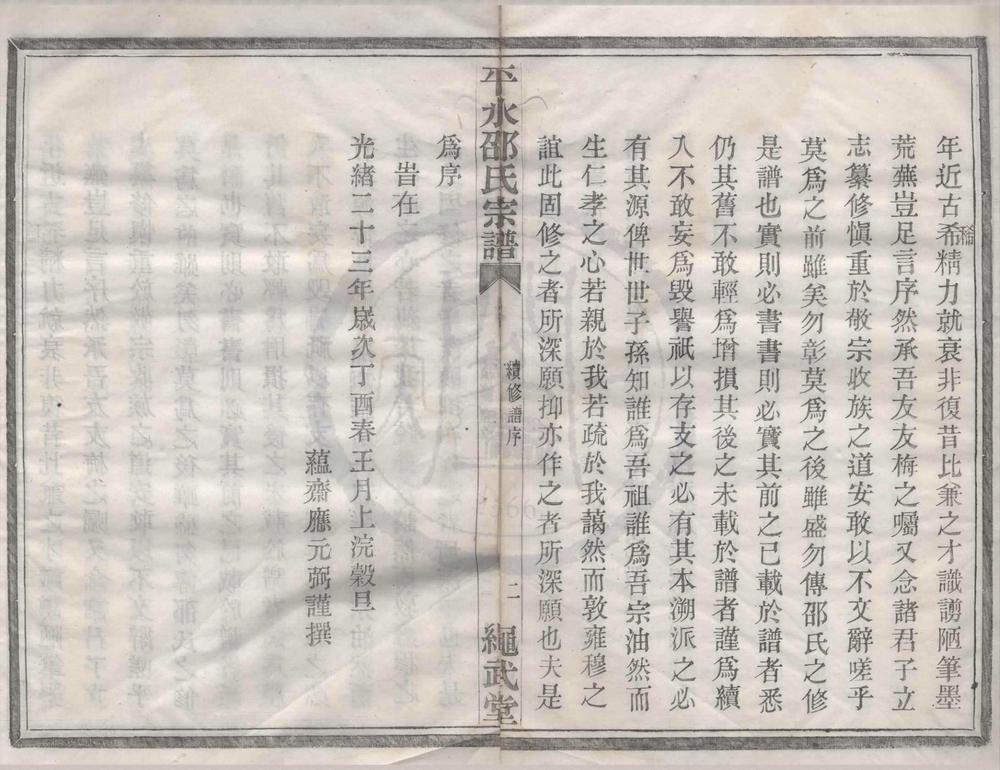 年近古稀精力就衰非復昔比兼之才識謭陋筆墨
荒蕪豈足言序然承吾友友梅之囑又念諸君子立
志纂修愼重於敬宗收族之道安敢以不文辭嗟乎
莫爲之前雖美勿彰莫爲之後雖盛勿傳邵氏之修
是譜也實則必書書則必實其前之已載於譜者悉
仍其舊不敢輕爲增損其後之未載於譜者謹爲續
入不敢妄爲毀譽祇以存支之必有其本溯派之必
有其源俾世世子孫知誰爲吾祖誰爲吾宗油然而
生仁孝之心若親於我若疏於我藹然而敦雍穆之
誼此固修之者所深願抑亦作之者所深願也夫是
平水邵氏宗譜
續修譜序
二
繩武堂
爲序
旹在
光緒二十三年歲次丁酉春王月上浣穀旦
蘊齋應元弼謹撰